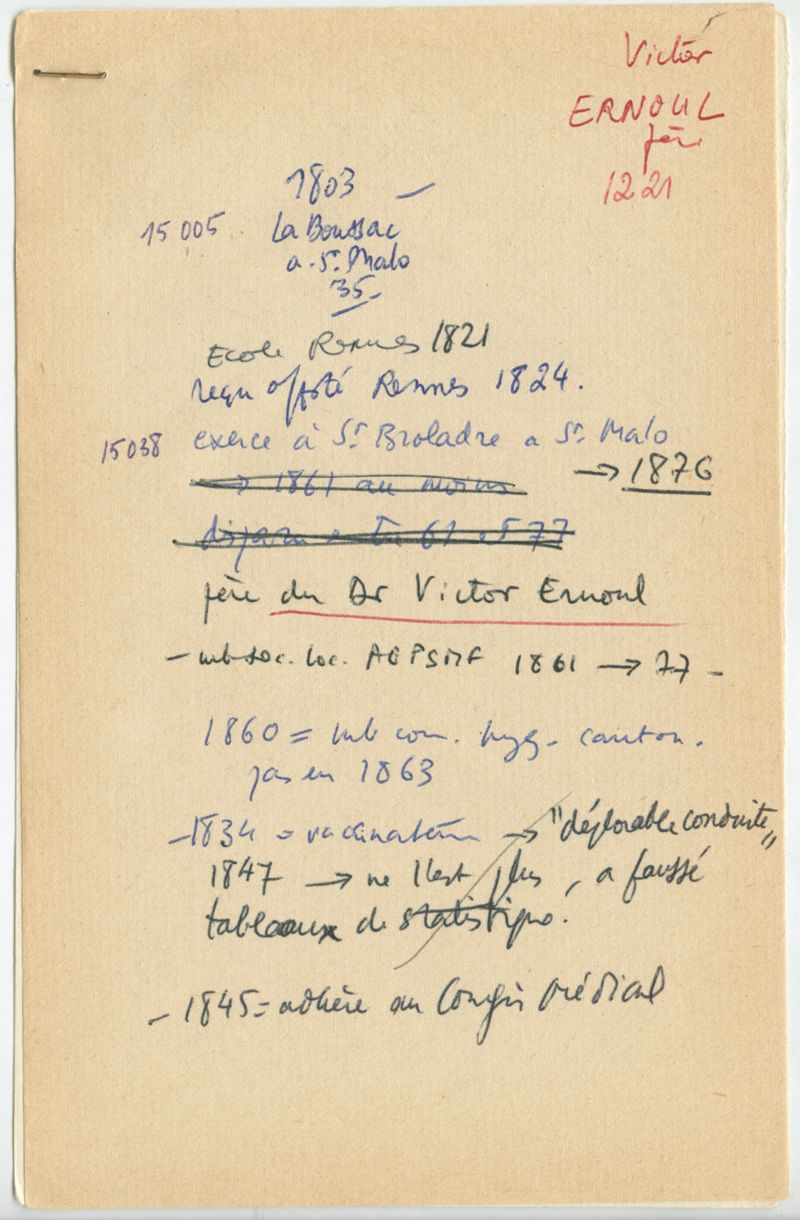 Victor
ERNOUL
père
1221
1803 —
15005 La Boussac
a. St Malo
35
Ecole Rennes 1821
reçu offté Rennes 1824.
15038 exerce à St Broladre a St Malo
→ 1861 au moins → 1876
disparu entre 61 et 77
père du Dr Victor Ernoul
— mb soc. loc. AGPSMF 1861 → 77 –
1860 = mb com. hyg. canton.
pas en 1863
– 1834 = vaccinateur → "déplorable conduite"
1847 → ne l'est plus, a faussé
tableaux de statistique.
– 1845 = adhère au Congrès Médical